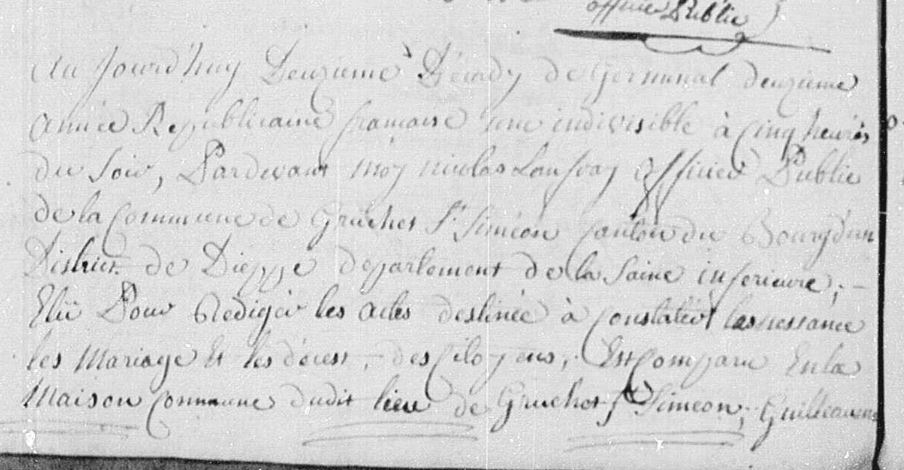 officier Public
Au Jourd'huy Deuxieme Décady de Germinal deuxieme
année Republicaine francaise une indivisible à Cinq heures
du Soir, Pardevant moy nicolas Officier Public
de la Commune de Gruchet St Siméon Canton du Bourgdun
District de Dieppe departement de la Saine inferieure;
Elû Pour Redigér les actes destinée à Constatér les nessance
les Mariage Et les décest, des Citoyens, Est Comparu En la
Maison Commune dudit lieu de Gruchet St Siméon, Guilleaume